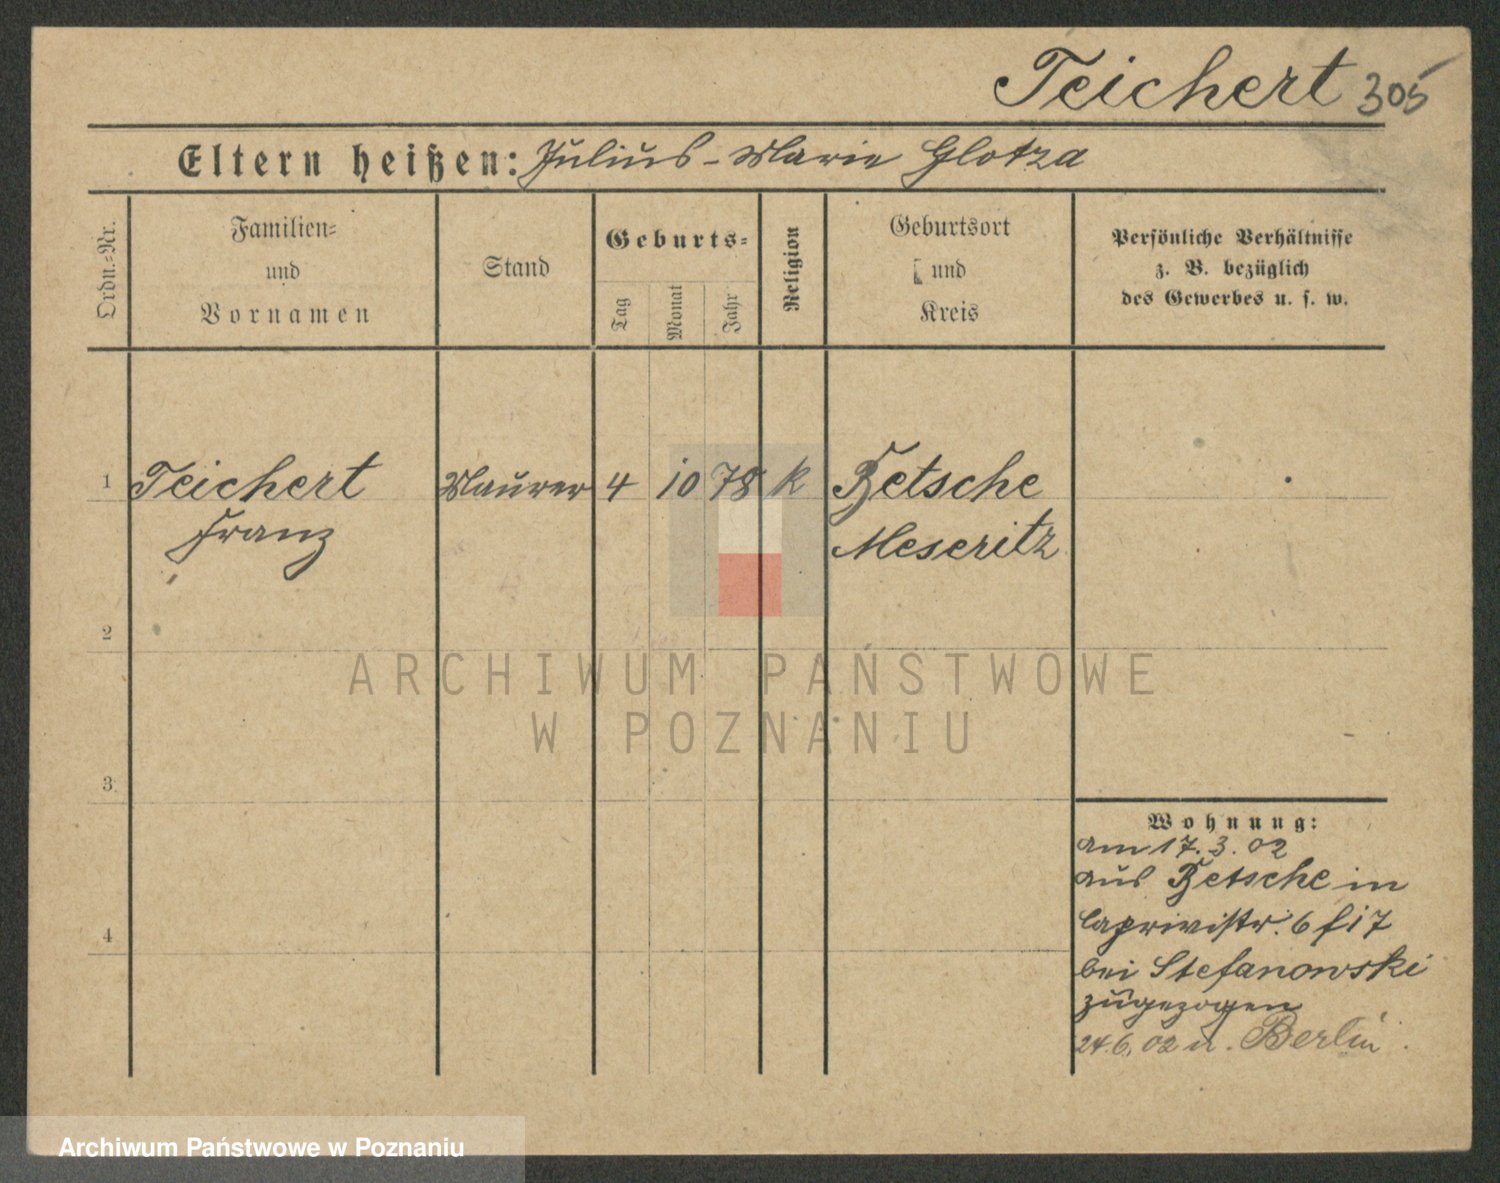 Teichert 305
Eltern heißen: Julius - Marie Glotza
Ordn.=Nr.
Familien=
und
Vornamen
Stand
Geburts=
Tag
Monat
Jahr
Religion
Geburtsort
und
Kreis
Persönliche Verhältnisse
z. B. bezüglich
des Gewerbes u. s. w.
1 Teichert Maurer 4 10 78 k Betsche
Franz Meseritz
2
ARCHIWUM PAŃSTWOWE
W POZNANIU
3
Wohnung:
am 17.3.02
aus Betsche in
Caprivistr. 6 f 17
4
bei Stefanowski
zugezogen
24.6.02 n. Berlin.
Archiwum Państwowe w Poznaniu